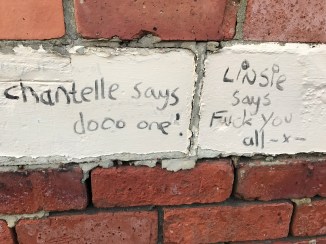 chantelle says
doco one!
LiNSie
says
Fuck You
all -x-